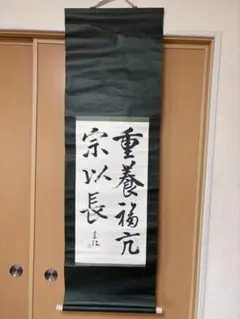 重養福亢
宗以長